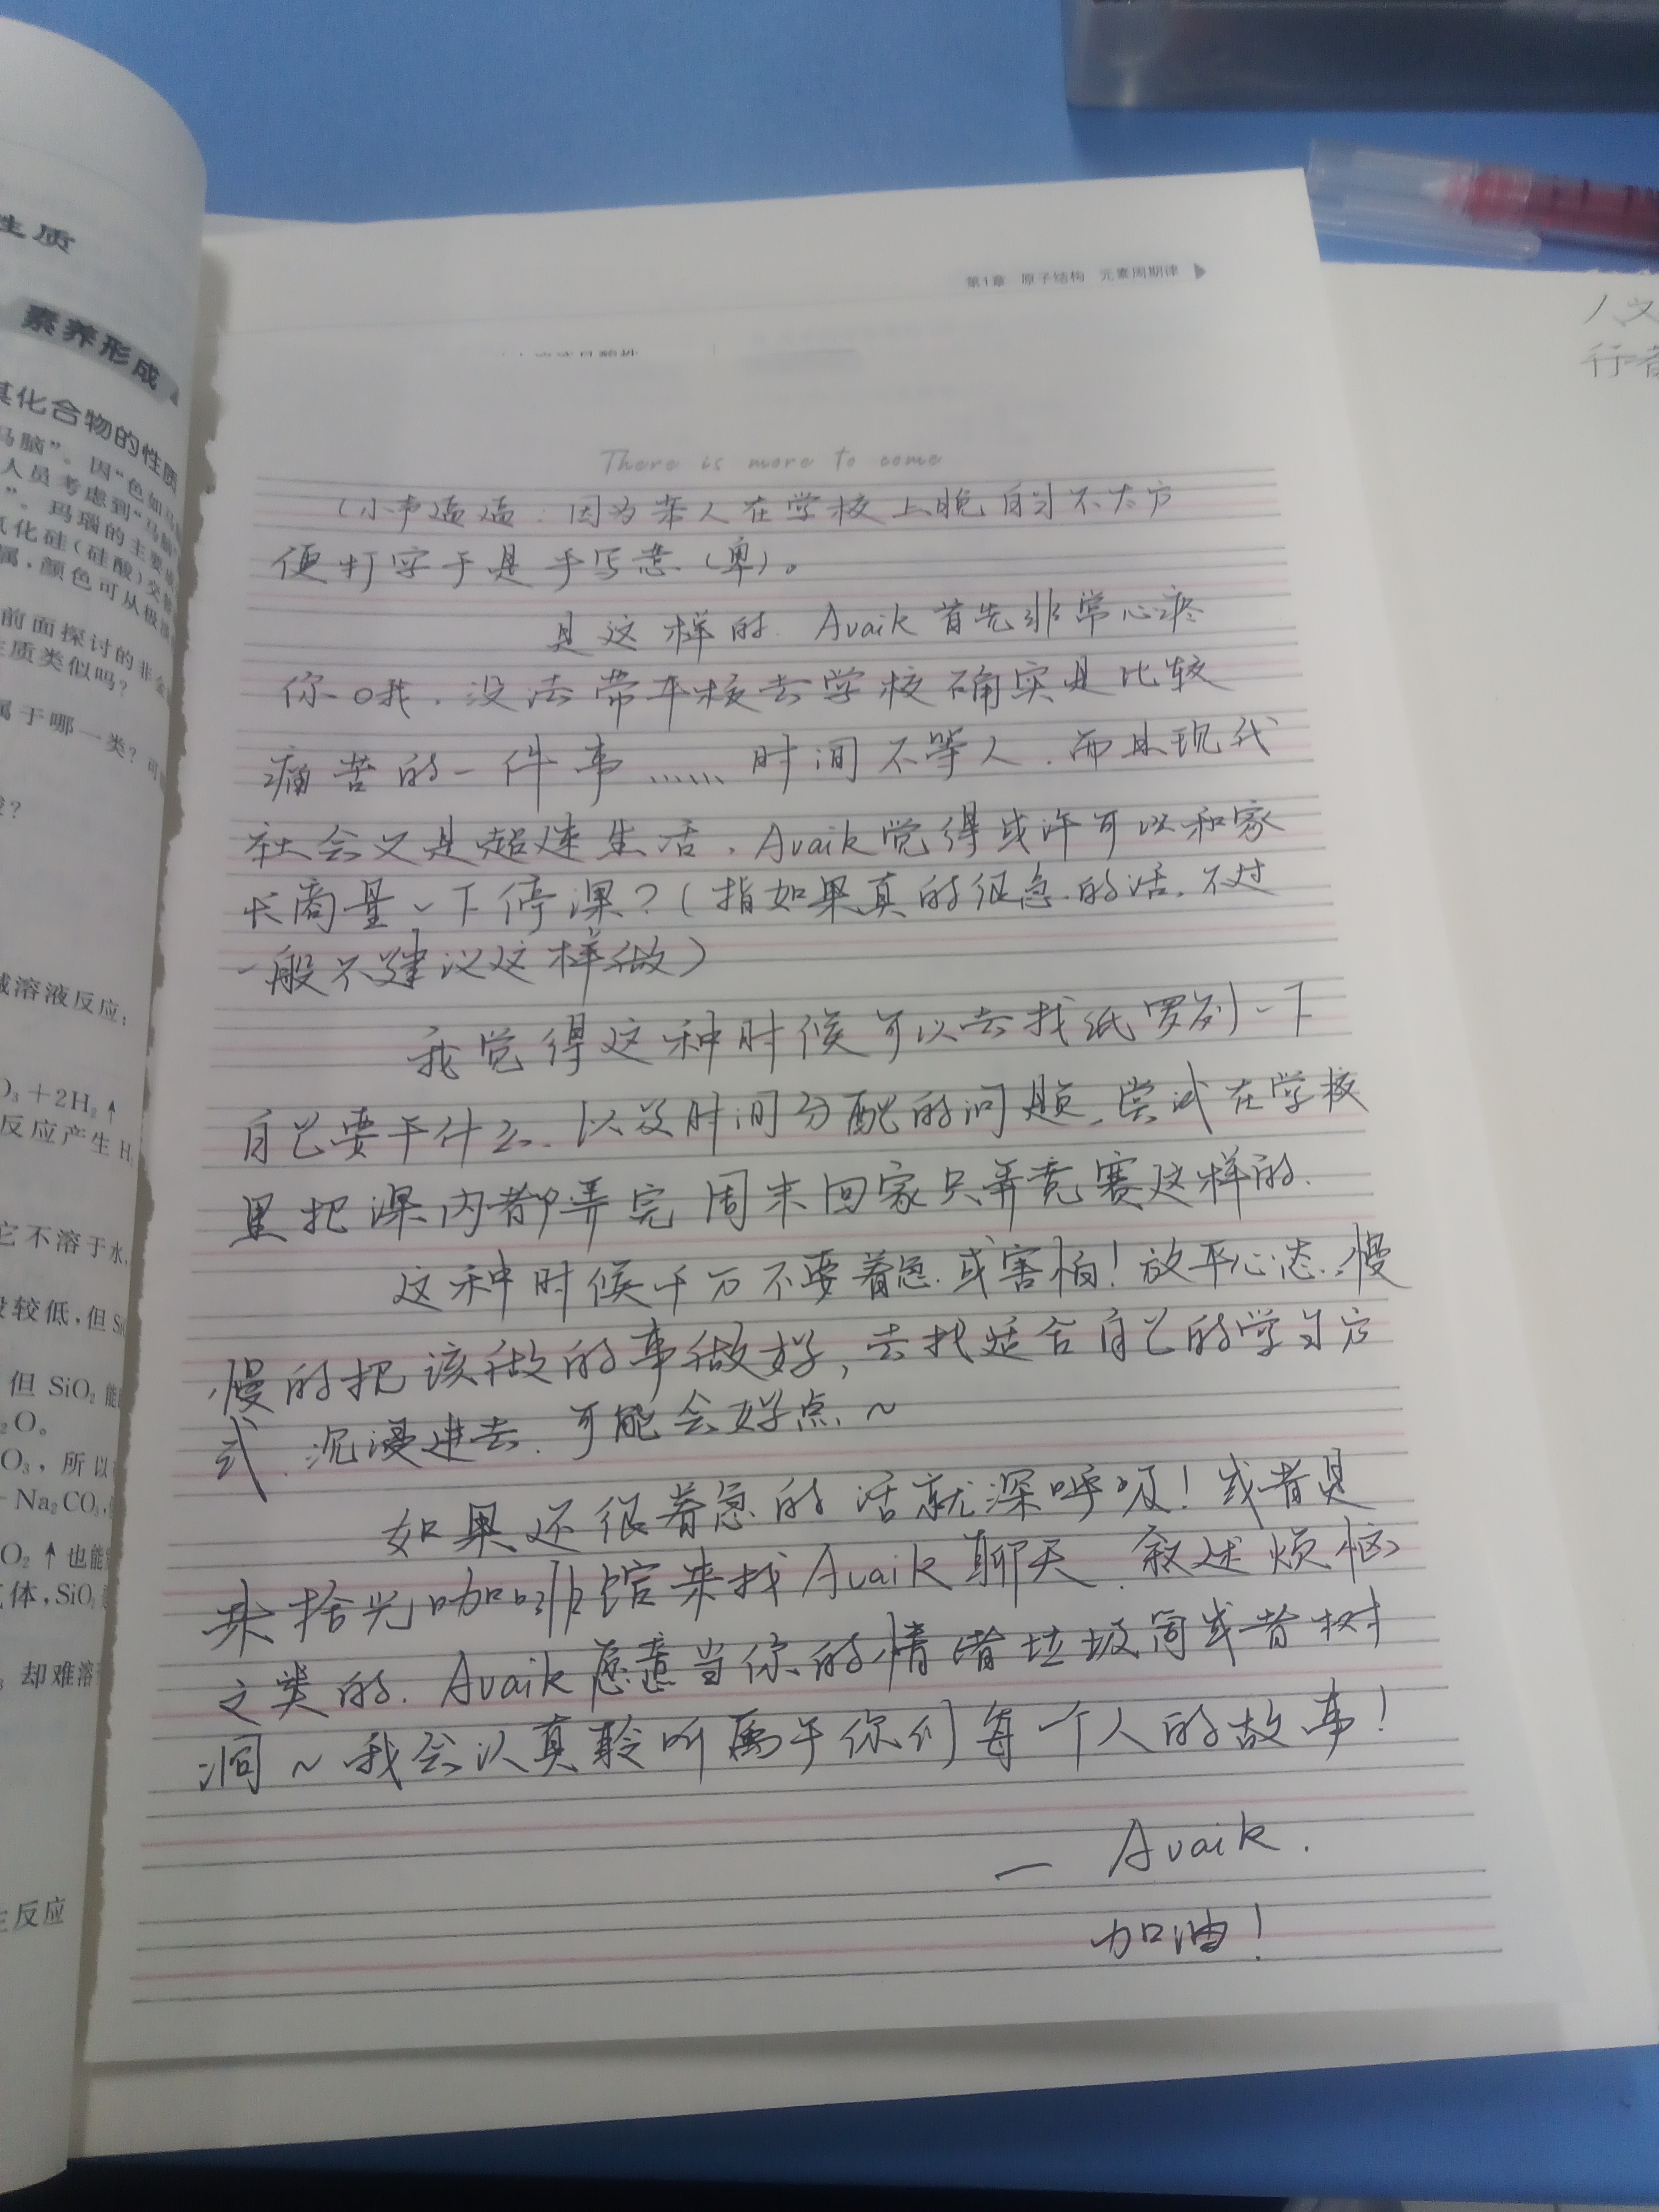 性质
素养形成
其化合物的性质
马脑”。因“色如马
人员考虑到“马脑”
”。玛瑙的主要
氧化硅(硅酸)交替
属,颜色可从极
前面探讨的非金
性质类似吗?
属于哪一类?可
碱溶液反应:
O₃+2H₂↑
反应产生H
它不溶于水,
较低,但Si
但SiO₂能
₂O。
O₃,所以
Na₂CO₃,
O₂↑也能
体,SiO₂
却难溶
反应
第1章 原子结构 元素周期律
There is more to come
(小声逼逼:因为本人在学校上晚自习不太方
便打字于是手写惹(卑)。
是这样的. Avaik首先非常心疼
你哦,没法带平板去学校确实是比较
痛苦的一件事……时间不等人.而且现代
社会又是超速生活,Avaik觉得或许可以和家
长商量一下停课?(指如果真的很急的话,不过
一般不建议这样做)
我觉得这种时候可以去找纸罗列一下
自己要干什么.以及时间分配的问题,尝试在学校
里把课内都弄完周末回家只弄竞赛这样的.
这种时候千万不要着急.或害怕!放平心态,慢
慢的把该做的事做好,去找适合自己的学习方
式.沉浸进去.可能会好点~
如果还很着急的话就深呼吸!或者是
来拾光咖啡馆来找Avaik聊天.叙述烦恼
之类的.Avaik愿意当你的情绪垃圾筒或者树
洞~我会认真聆听属于你们每一个人的故事!
— Avaik.
加油!
人文
行者